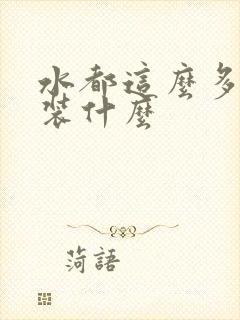 水都這麼多
裝什麼
菏語